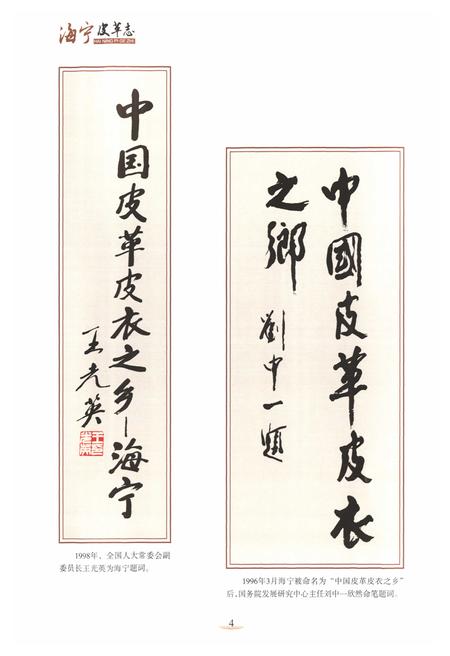 海宁皮革志
HAI NING PI GE ZHI
中国皮革皮衣之乡—海宁
王光英
1998年，全国人大常委会副
委员长王光英为海宁题词。
中國皮革皮衣
之鄉
劉中一題
1996年3月海宁被命名为“中国皮革皮衣之乡”
后，国务院发展研究中心主任刘中一欣然命笔题词。
4